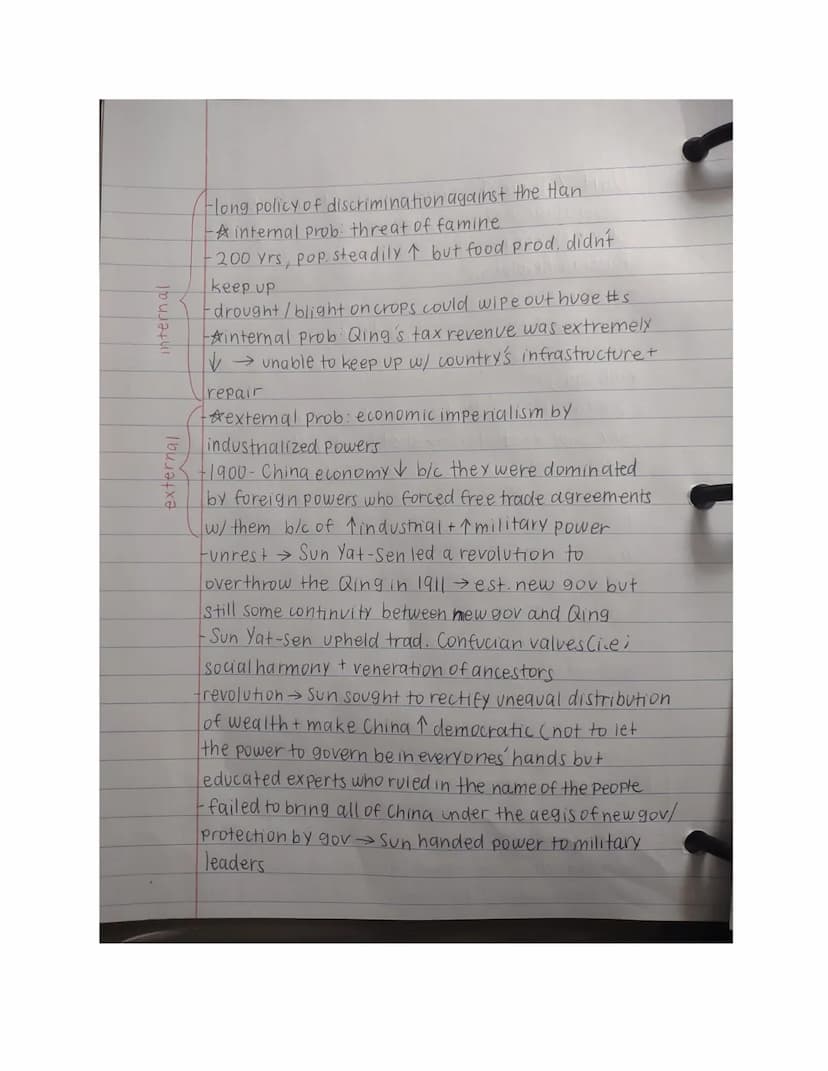 -long policy of discrimination against the Han
-☆ internal prob: threat of famine
-200 yrs, pop. steadily ↑ but food prod. didn't
keep up
-drought/blight on crops could wipe out huge #s
-☆internal prob: Qing's tax revenue was extremely
↓ → unable to keep up w/ country's infrastructure +
repair
internal
-☆external prob: economic imperialism by
industrialized powers
-1900- China economy ↓ b/c they were dominated
by foreign powers who forced free trade agreements
w/ them b/c of ↑industrial + ↑military power
external
-unrest → Sun Yat-Sen led a revolution to
overthrow the Qing in 1911 → est. new gov but
still some continuity between new gov and Qing
-Sun Yat-sen upheld trad. Confucian values (i.e;
social harmony + veneration of ancestors
-revolution → Sun sought to rectify unequal distribution
of wealth + make China ↑ democratic (not to let
the power to govern be in everyones' hands but
educated experts who ruled in the name of the people
-failed to bring all of China under the aegis of new gov/
protection by gov → Sun handed power to military
leaders